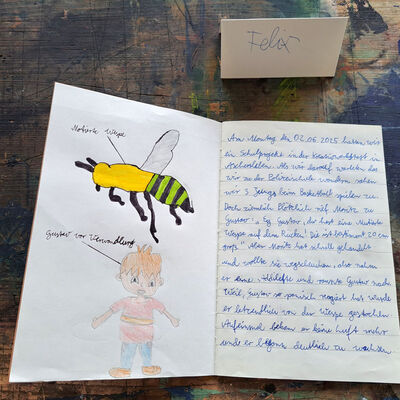 Felix
Mutierte Wespe
Gustav vor Verwandlung
Am Montag den 02.06.2025 hatten wir
ein Schulprojekt in der Kreativwerkstatt in
Aschersleben. Als wir darauf warteten das
wir zu der Polizeischule wandern, sahen
wir 3 Jungs beim Basketball spielen zu.
Doch ziemlich Plötzlich rief Moritz zu
Gustav: „Ey Gustav, du hast eine Mutierte
Wespe auf dem Rücken! Die ist bestimmt 20 cm
groß!" Aber Moritz hat schnell gehandelt
und wollte sie wegscheuchen, also nahm
er eine und Gustav nach
Weil, Gustav so panisch reagiert hat wurde
er letztendlich von der Wespe gestochen
Aufeinmal bekam er keine Luft mehr
und er begann deutlich zu wachsen